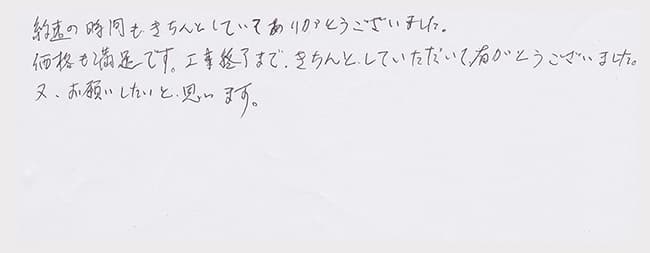 約束の時間もきちんとしていてありがとうございました。
価格も満足です。工事終了まで、きちんと、していただいて、有がとうございました。
又、お願いしたいと、思います。